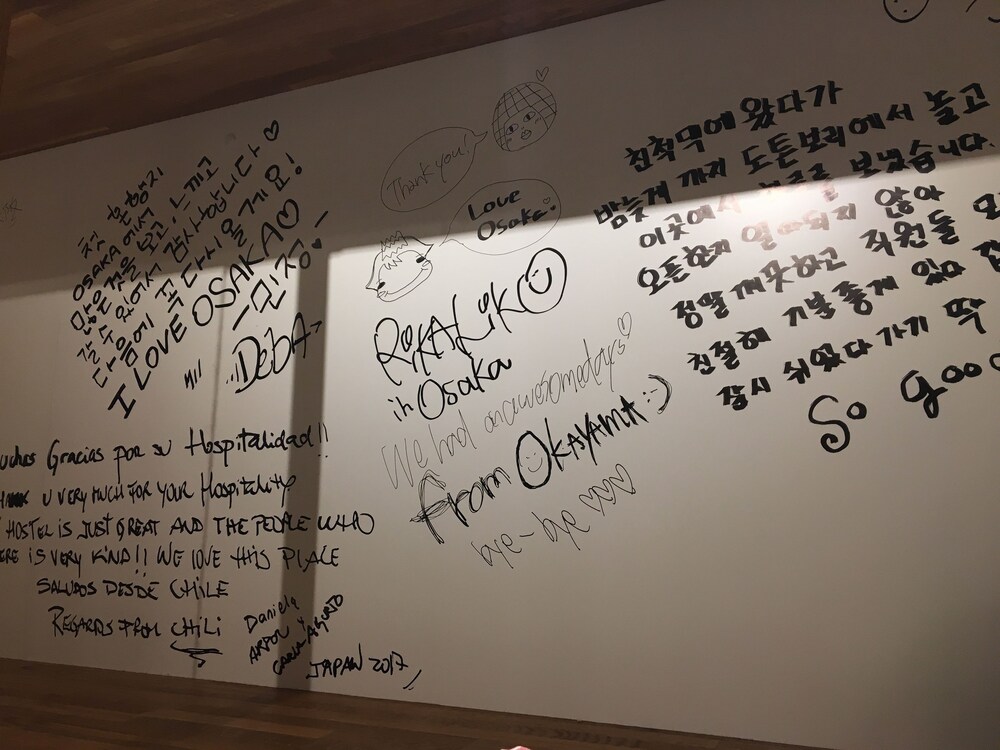 첫 혼행지
OSAKA 에서
많은것을 보고, 느끼고
갈 수 있어서 감사합니다♡
다음에 꼭 다시 올게요!
I LOVE OSAKA♡
-민정-
...DebA
Muchas Gracias por su Hospitalidad!!
U VERY MUCH FOR YOUR Hospitality
HOSTEL IS JUST GREAT AND THE PEOPLE WHO
IS VERY KIND!! WE LOVE tHiS PLACE
SALUDOS DESDE CHILE
REGARDS FROM CHILI
Daniela
JAPAN 2017
Thank you!
Love
Osaka
in Osaka
We had an awesome days♡
From OKAYAMA :)
bye-bye ♡♡♡
친척댁에 왔다가
밤늦게 까지 도톤보리에서 놀고
이곳에서 하루를 보냈습니다.
오픈한지 얼마되지 않아
정말 깨끗하고 직원들 모
친절해 기분좋게 있다
잠시 쉬었다 가기 딱
So good